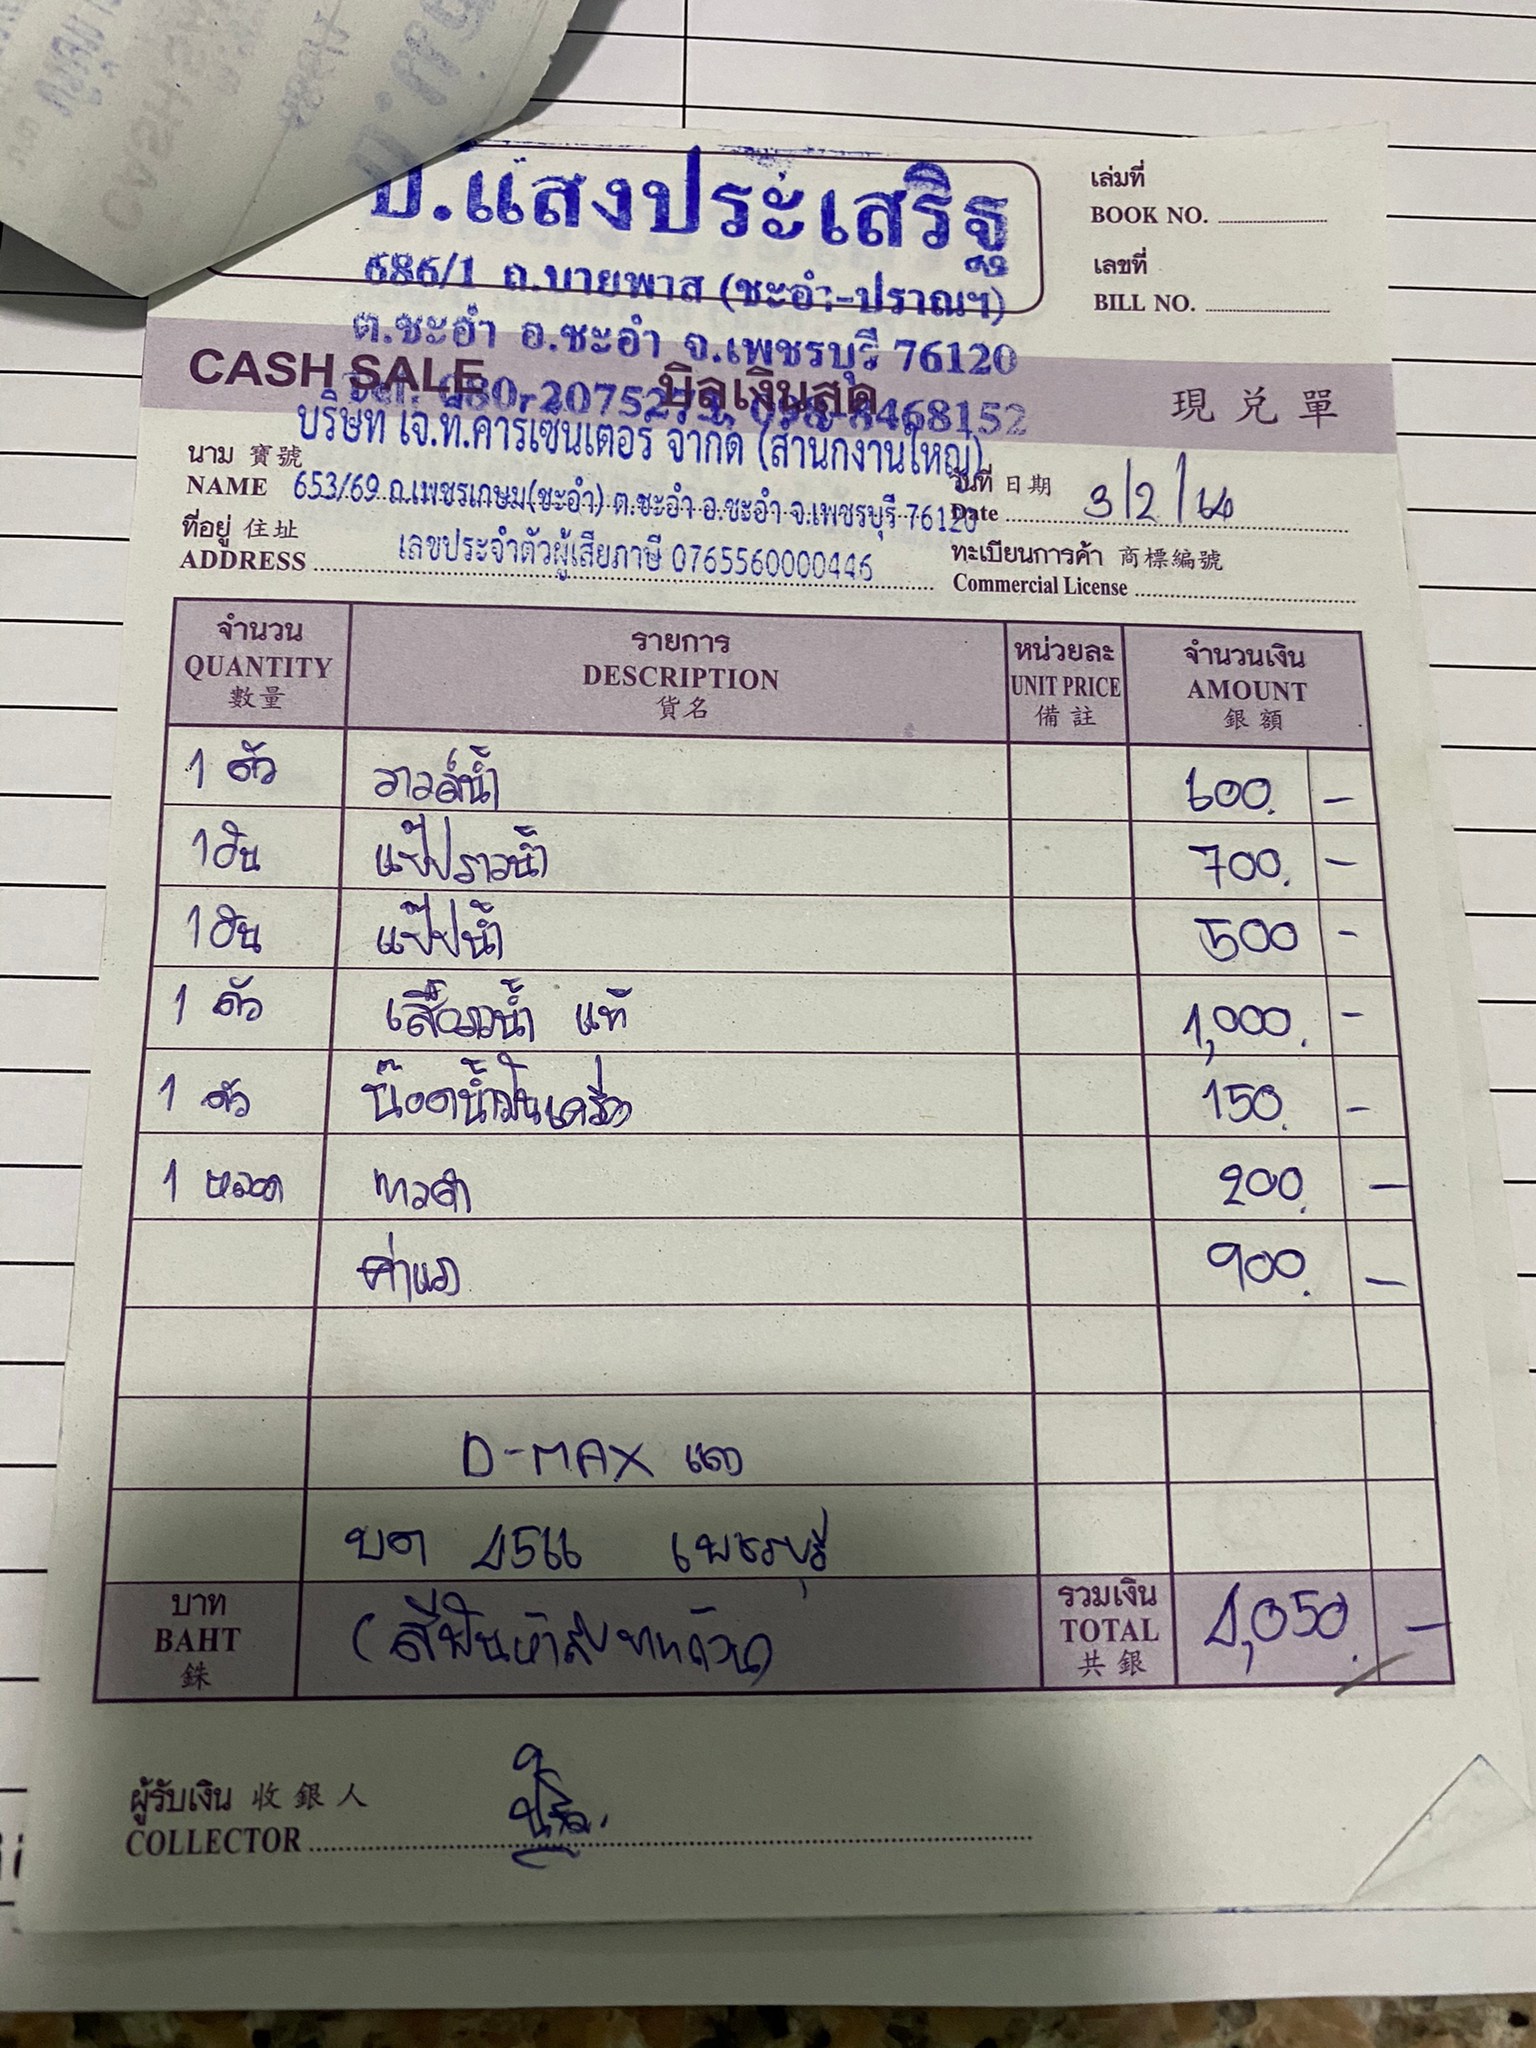 ป.แสงประเสริฐ
686/1 ถ.บายพาส (ชะอำ-ปราณฯ)
ต.ชะอำ อ.ชะอำ จ.เพชรบุรี 76120
เล่มที่
BOOK NO.
เลขที่
BILL NO.
CASH SALE บิลเงินสด 現兌單
บริษัท เจ.ที.คาร์เซ็นเตอร์ จำกัด (สำนักงานใหญ่)
นาม 寶號
NAME 653/69 ถ.เพชรเกษม(ชะอำ) ต.ชะอำ อ.ชะอำ จ.เพชรบุรี 76120
วันที่ 日期
Date 3/2/
ที่อยู่ 住址
ADDRESS เลขประจำตัวผู้เสียภาษี 0765560000446
ทะเบียนการค้า 商標編號
Commercial License
จำนวน รายการ หน่วยละ จำนวนเงิน
QUANTITY DESCRIPTION UNIT PRICE AMOUNT
數量 貨名 備註 銀額
1 ตัว วาวล์น้ำ 600.-
1 อัน แป๊ปราวน้ำ 700.-
1 อัน แป๊ปน้ำ 500 -
1 ตัว เสื้อวาวน้ำ แท้ 1,000.-
1 ตัว น๊อตน้ำมันเครื่อง 150.-
1 หลอด กาวดำ 200.-
ค่าแรง 900.-
D-MAX แดง
บต 4511 เพชรบุรี
บาท
BAHT
銖
(สี่พันห้าสิบบาทถ้วน)
รวมเงิน
TOTAL 4,050.-
共銀
ผู้รับเงิน 收銀人
COLLECTOR